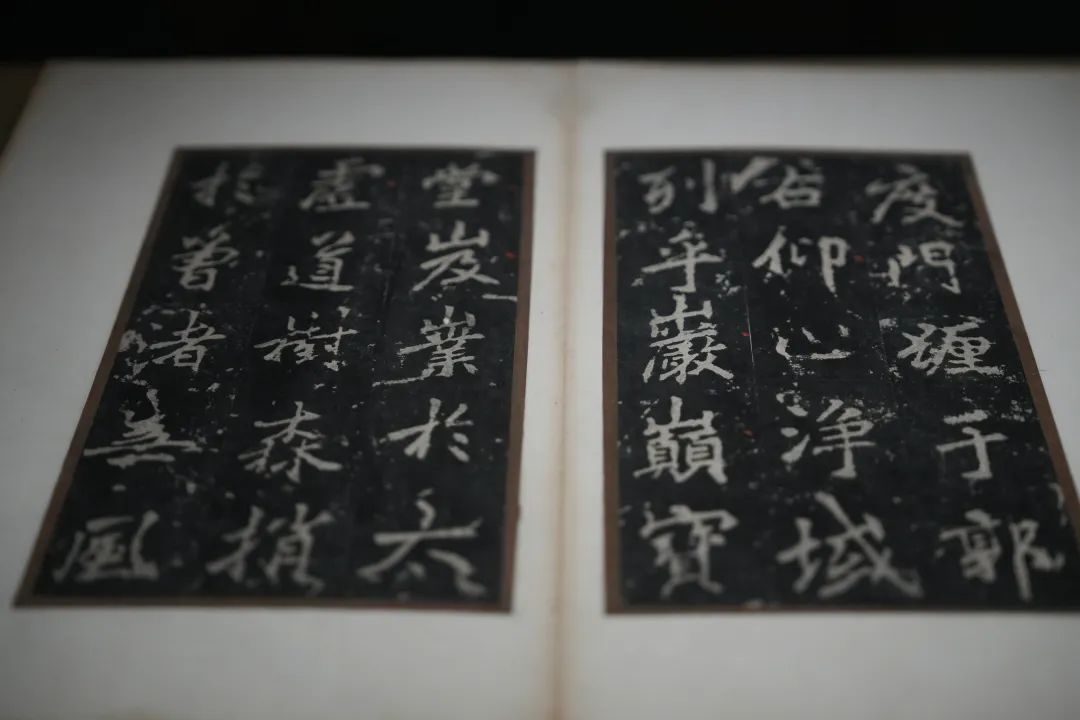 度門纏于郭
右仰止淨域
列乎巖巔寶
堂岌嶪於太
虛道樹森梢
於曾渚無風